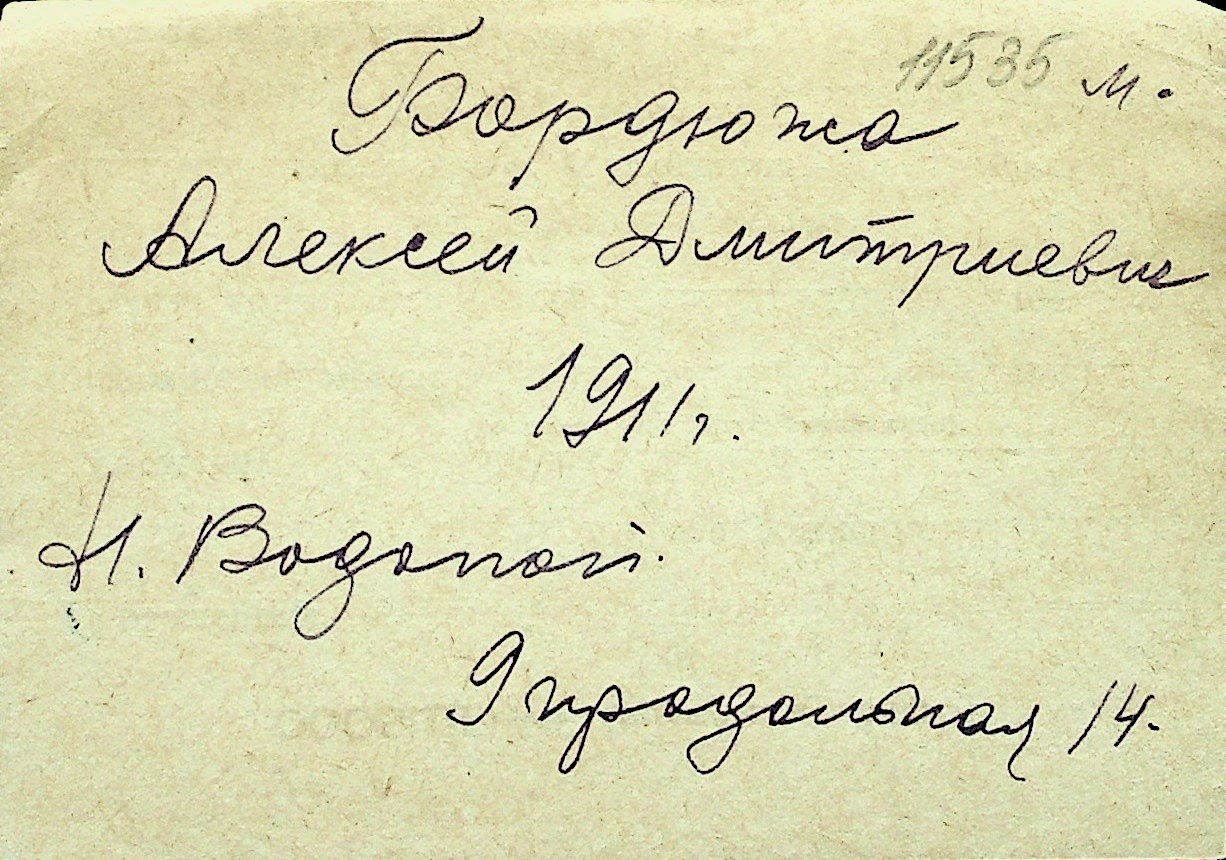 11535 м.
Бордюжа
Алексей Дмитриевич
1911г.
Н. Водопой.
9 продольная 14.